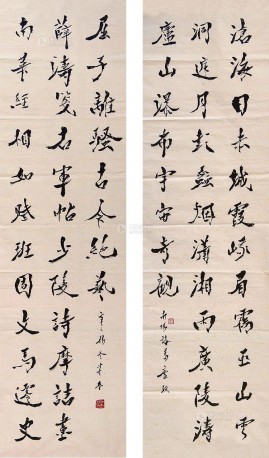 滄海日赤城霞峨眉霧巫山雲
洞庭月彭蠡烟瀟湘雨廣陵濤
廬山瀑布宇宙奇觀
屈子離騷古今絕藝
薛濤箋右軍帖少陵詩摩詰畫
南華經相如賦班固文馬遷史